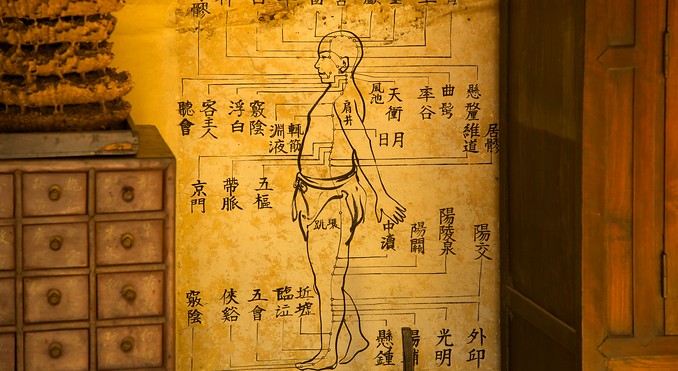 聽會
客主人
浮白
竅陰
風池
天衝
率谷
曲髩
懸釐
淵液
輒筋
肩井
日月
維道
居髎
京門
帶脈
五樞
跳環
中瀆
陽關
陽陵泉
陽交
竅陰
俠谿
五會
臨泣
坵墟
懸鍾
光明
外邱